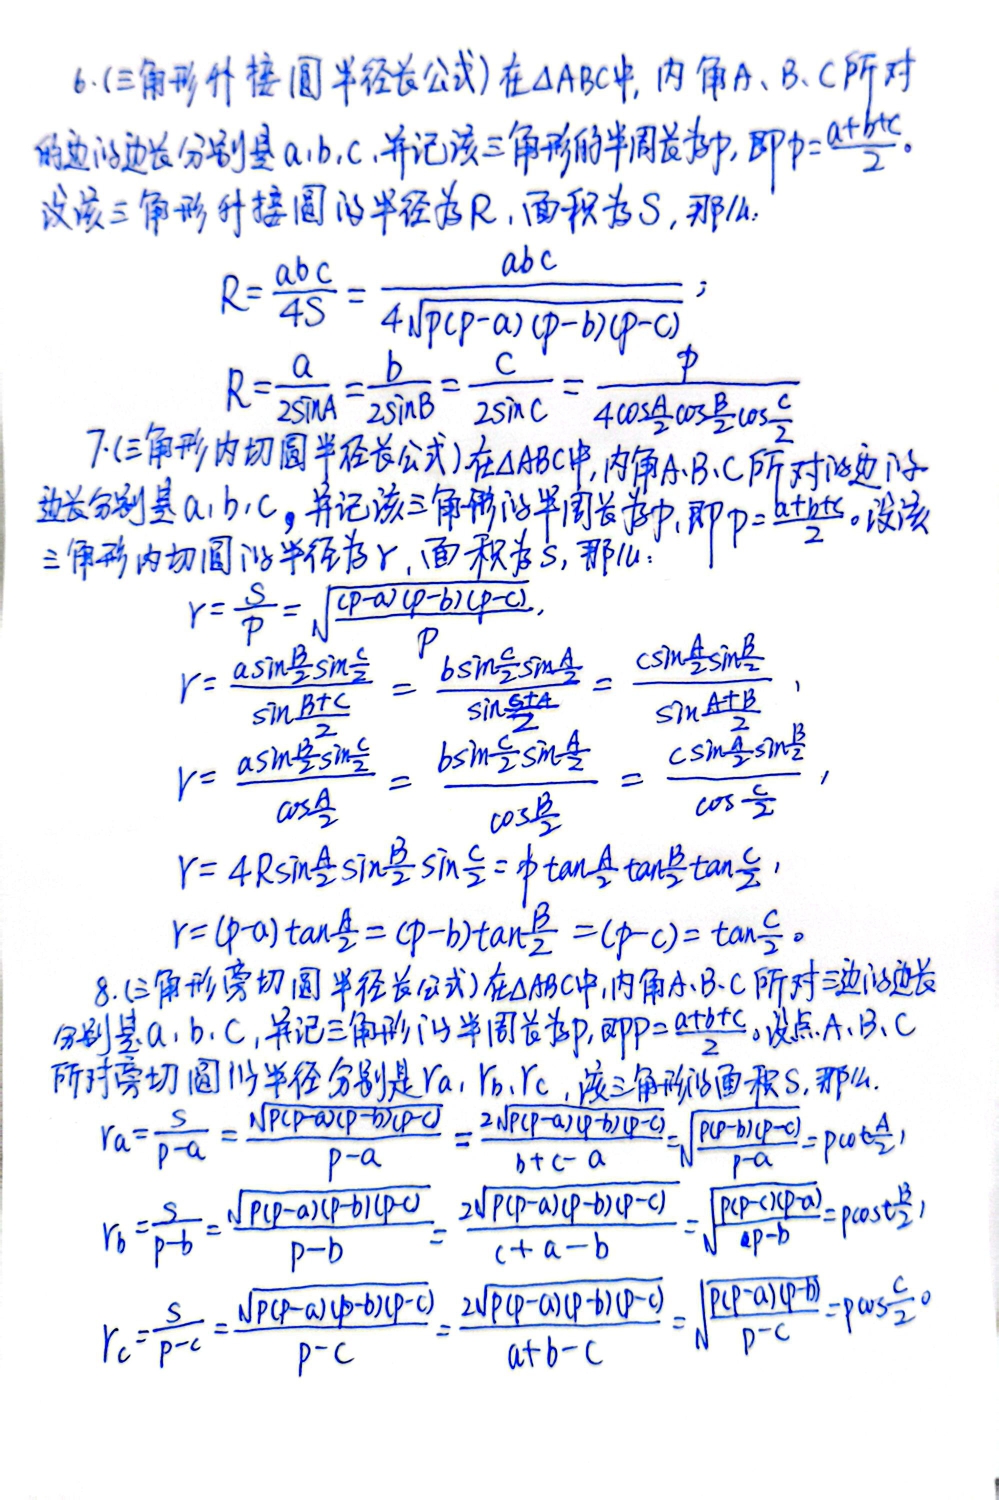 6.(三角形外接圆半径长公式)在△ABC中,内角A、B、C所对
的边的边长分别是a,b,c,并记该三角形的半周长为p,即p=\frac{a+b+c}{2}。
设该三角形外接圆的半径为R,面积为S,那么:
R=\frac{abc}{4S}=\frac{abc}{4\sqrt{p(p-a)(p-b)(p-c)}};
R=\frac{a}{2sinA}=\frac{b}{2sinB}=\frac{c}{2sinC}=\frac{p}{4cos\frac{A}{2}cos\frac{B}{2}cos\frac{C}{2}}
7.(三角形内切圆半径长公式)在△ABC中,内角A、B、C所对的边的
边长分别是a,b,c,并记该三角形的半周长为p,即p=\frac{a+b+c}{2}。设该
三角形内切圆的半径为r,面积为S,那么:
r=\frac{S}{p}=\sqrt{\frac{(p-a)(p-b)(p-c)}{p}},
r=\frac{asin\frac{B}{2}sin\frac{C}{2}}{sin\frac{B+C}{2}}=\frac{bsin\frac{C}{2}sin\frac{A}{2}}{sin\frac{C+A}{2}}=\frac{csin\frac{A}{2}sin\frac{B}{2}}{sin\frac{A+B}{2}},
r=\frac{asin\frac{B}{2}sin\frac{C}{2}}{cos\frac{A}{2}}=\frac{bsin\frac{C}{2}sin\frac{A}{2}}{cos\frac{B}{2}}=\frac{csin\frac{A}{2}sin\frac{B}{2}}{cos\frac{C}{2}},
r=4Rsin\frac{A}{2}sin\frac{B}{2}sin\frac{C}{2}=p tan\frac{A}{2}tan\frac{B}{2}tan\frac{C}{2},
r=(p-a)tan\frac{A}{2}=(p-b)tan\frac{B}{2}=(p-c)=tan\frac{C}{2}。
8.(三角形旁切圆半径长公式)在△ABC中,内角A、B、C所对三边的边长
分别是a,b,c,并记三角形的半周长为p,即p=\frac{a+b+c}{2}。设点A、B、C
所对旁切圆的半径分别是ra,rb,rc,该三角形的面积S,那么.
ra=\frac{S}{p-a}=\frac{\sqrt{p(p-a)(p-b)(p-c)}}{p-a}=\frac{2\sqrt{p(p-a)(p-b)(p-c)}}{b+c-a}=\sqrt{\frac{p(p-b)(p-c)}{p-a}}=pcot\frac{A}{2},
rb=\frac{S}{p-b}=\frac{\sqrt{p(p-a)(p-b)(p-c)}}{p-b}=\frac{2\sqrt{p(p-a)(p-b)(p-c)}}{c+a-b}=\sqrt{\frac{p(p-c)(p-a)}{p-b}}=pcost\frac{B}{2},
rc=\frac{S}{p-c}=\frac{\sqrt{p(p-a)(p-b)(p-c)}}{p-c}=\frac{2\sqrt{p(p-a)(p-b)(p-c)}}{a+b-c}=\sqrt{\frac{p(p-a)(p-b)}{p-c}}=pcos\frac{C}{2}。